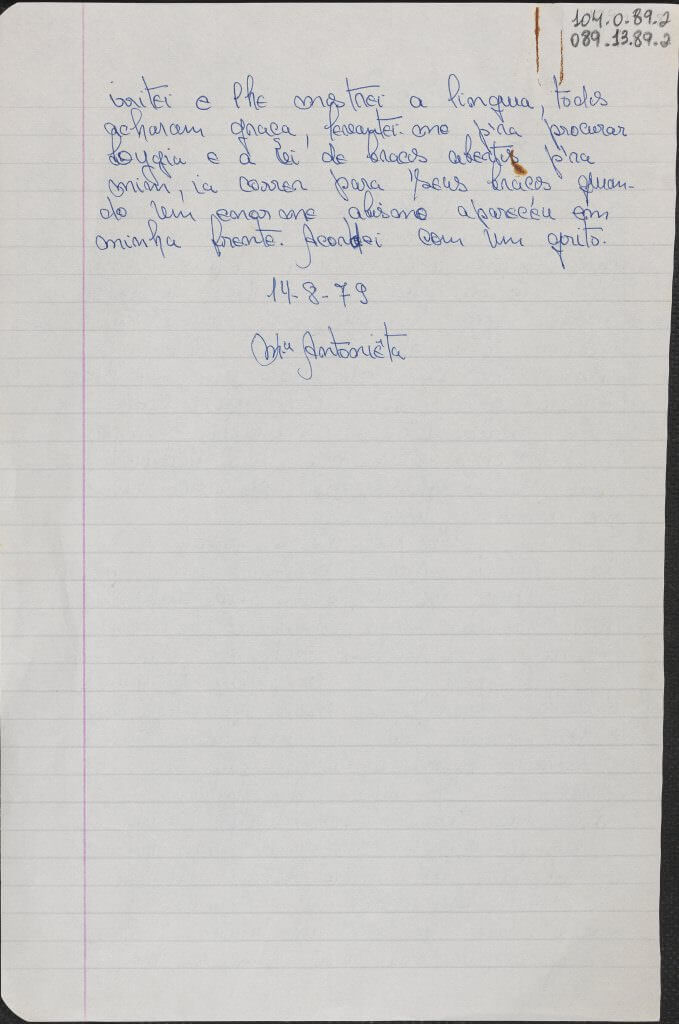 104.0.89.2
089.13.89.2
e lhe mostrei a lingua, todos
acharam graça, levantei-me p'ra procurar
e a vi de braços abertos p'ra
mim, ia correr para seus braços quan-
do um enorme abismo apareceu em
minha frente. Acordei com um grito.
14-8-79
Mª Antoniêta